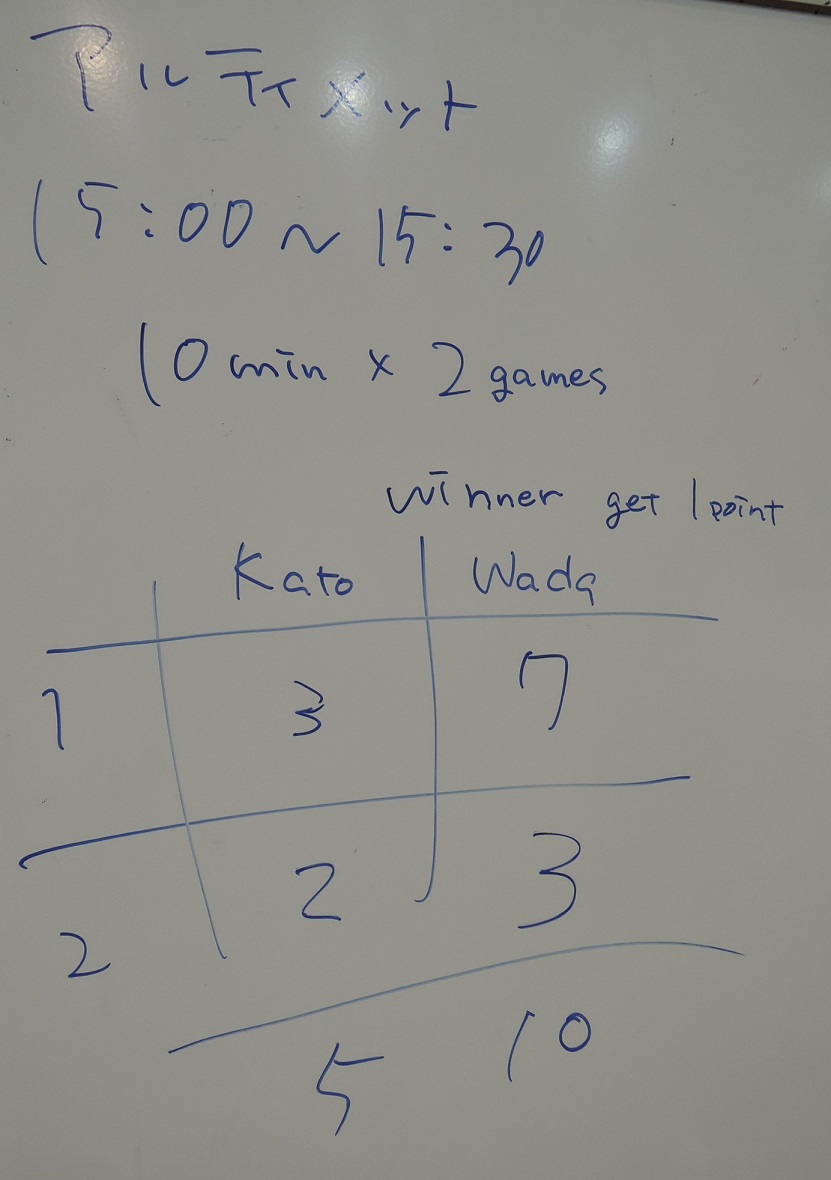 アルティメット
15:00〜15:30
10min × 2games
winner get 1point
Kato Wada
1 3 7
2 2 3
5 10